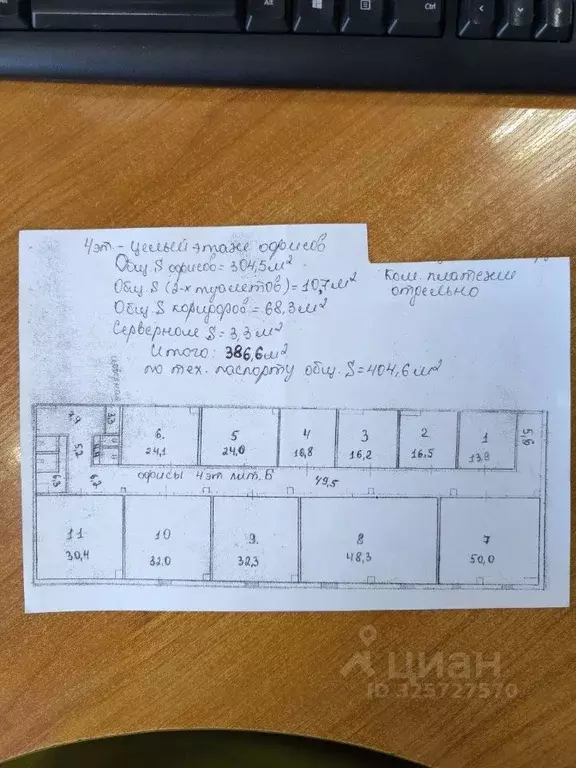 Alt
Ctrl
4эт - целый этаж офисов
Общ. S офисов = 304,5 м²
Общ. S (2-х туалетов) = 10,7 м²
Общ. S коридоров = 68,3 м²
Серверной S = 3,3 м²
Итого: 386,6 м²
по тех. паспорту общ. S = 404,6 м²
Ком. платежи
отдельно
6.
24,1
5
24,0
4
16,8
3
16,2
2
16,5
1
13,8
5,6
офисы 4эт лит. Б
49,5
11
30,4
10
32,0
9.
32,3
8
48,3
7
50,0
циан
ID 325727570